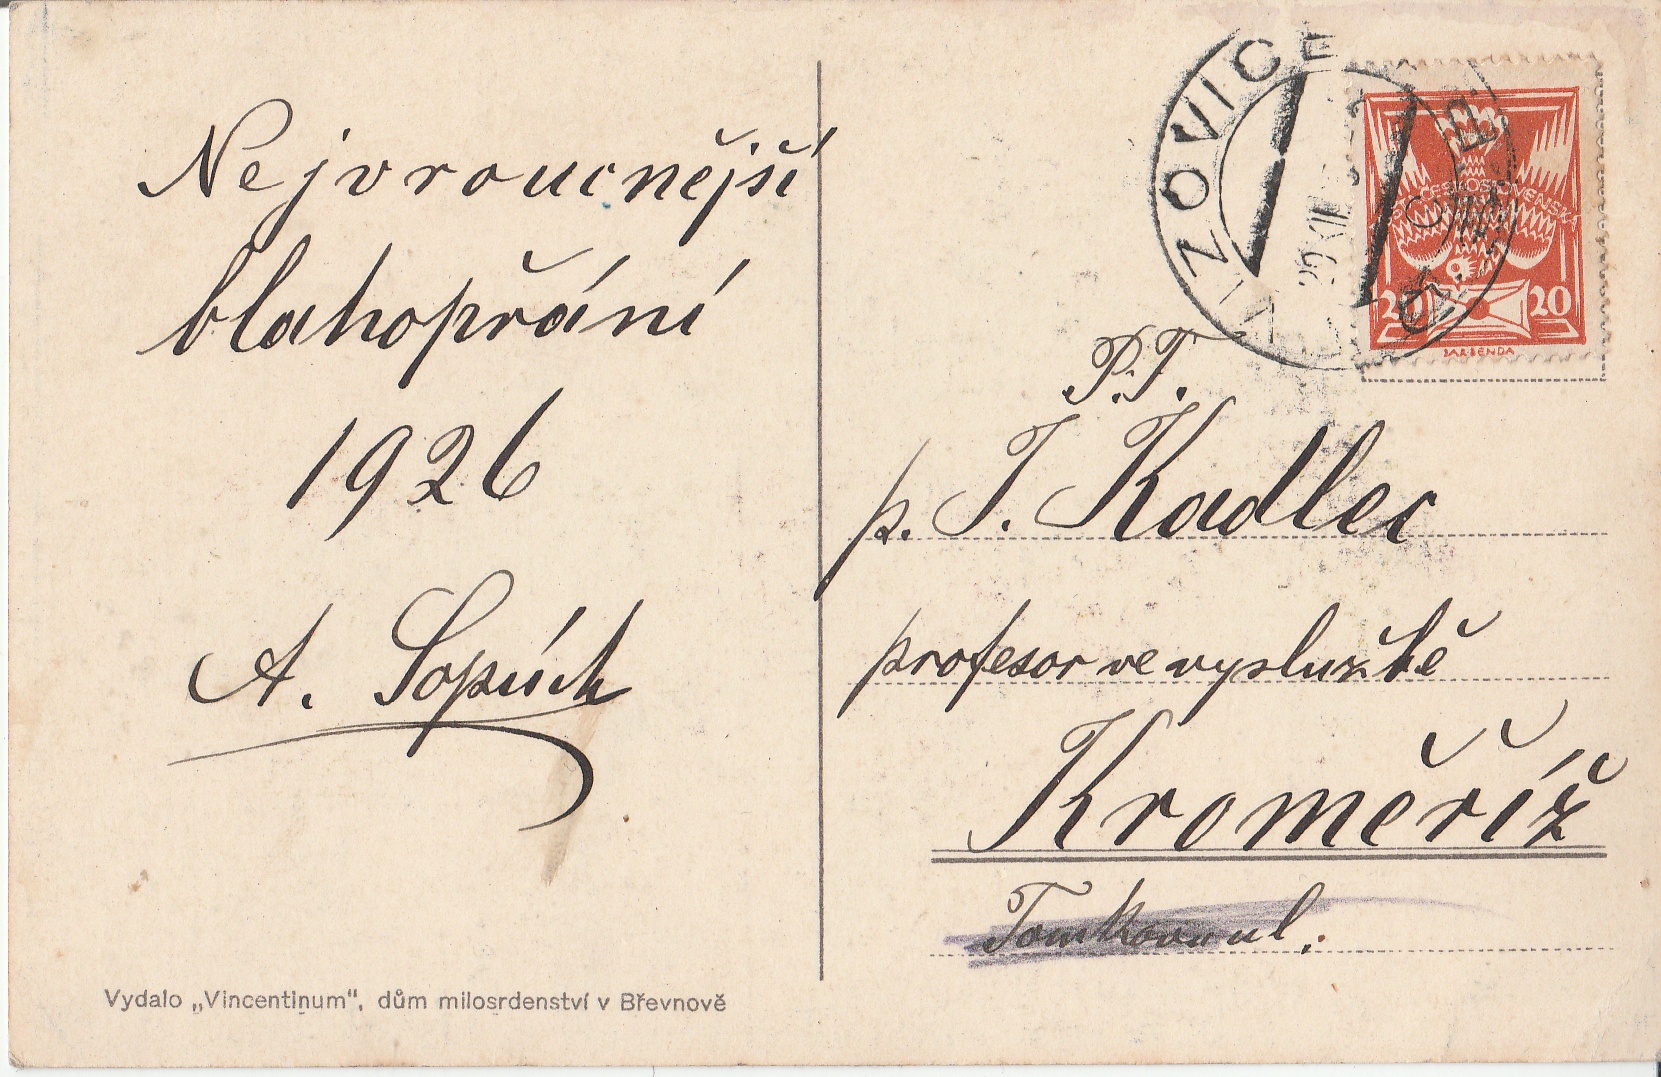 Nejvroucnější
blahopřání
1926
A. Sopúch
Vydalo „Vincentinum“, dům milosrdenství v Břevnově
VIZOVICE
ČESKOSLOVENSKÁ
20 20
P.T.
p. J. Kadlec
profesor ve vyslužbě
Kroměříž
Tomkova ul.